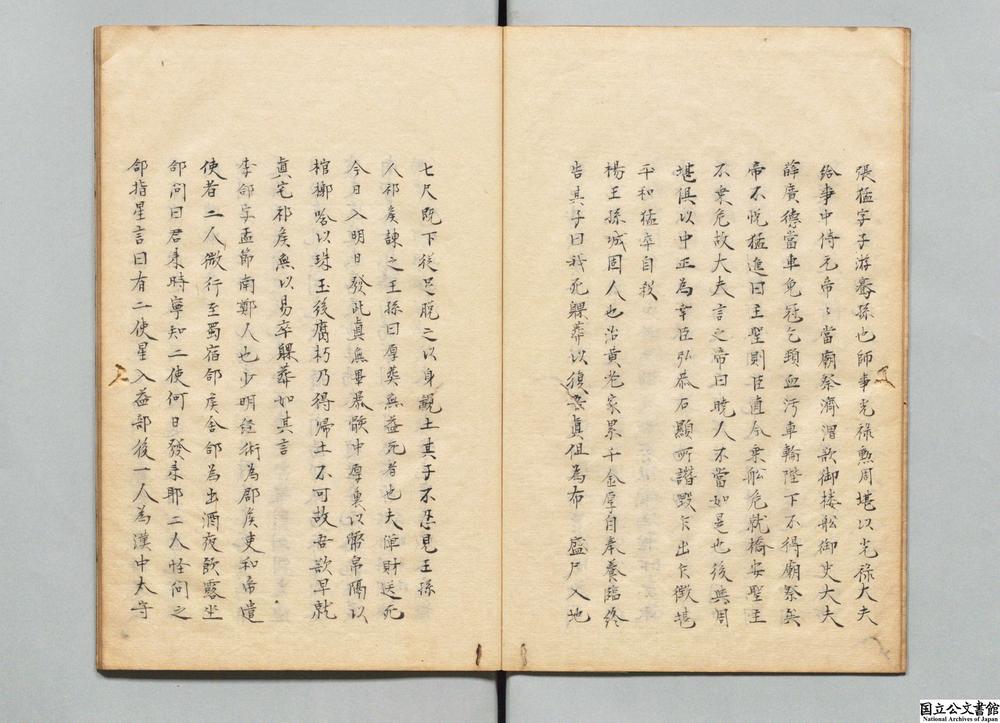 張猛字子游騫孫也師事光祿勲周堪以光祿大夫
給事中侍元帝〻當廟祭濟渭欲御楼舩御史大夫
薛廣德當車免冠乞頸血污車輪陛下不得廟祭矣
帝不悅猛進曰主聖則臣直今乗舩危就橋安聖主
不乗危故大夫言之帝曰曉人不當如是也後與周
堪俱以中正為宰臣弘恭石顯所譖毀乍出乍徴堪
平和猛卒自殺
楊王孫城固人也治黄老家累千金厚自奉養臨終
告其子曰我死躶葬以復吾眞但為布盛尸入地
七尺既下從足脫之以身親土其子不忍見王孫
人祁矦諫之王孫曰厚葬無益死者也夫俥財送死
今日入明日發此眞無異暴骸中厚裹以幣帛隔以
棺槨唅以珠玉後腐朽乃得歸土不可故吾欲早就
眞宅祁矦無以易卒躶葬如其言
李郃字孟節南鄭人也少明経術為郡矦吏和帝遣
使者二人微行至蜀宿郃矦舎郃為出酒夜飲露坐
郃問曰君来時寧知二使何日發来耶二人怪問之
郃指星言曰有二使星入益部後一人為漢中太守
国立公文書館
National Archives of Japan